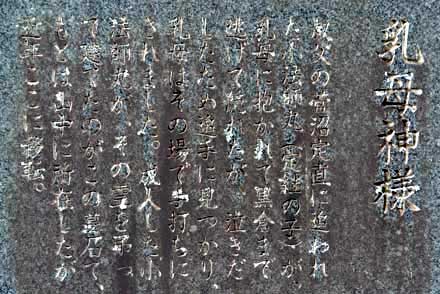 乳母神様
叔父の菅沼定直に追われ
た小法師丸(定継の子)が、
乳母に抱かれて黒倉まで
逃げて来たが、泣きだ
したため追手に見つかり、
乳母はその場で手打ちに
されました。成人した小
法師丸が、その霊を弔っ
て建てたのがこの墓石で、
もとは山中に所在したが
近年ここに移転。